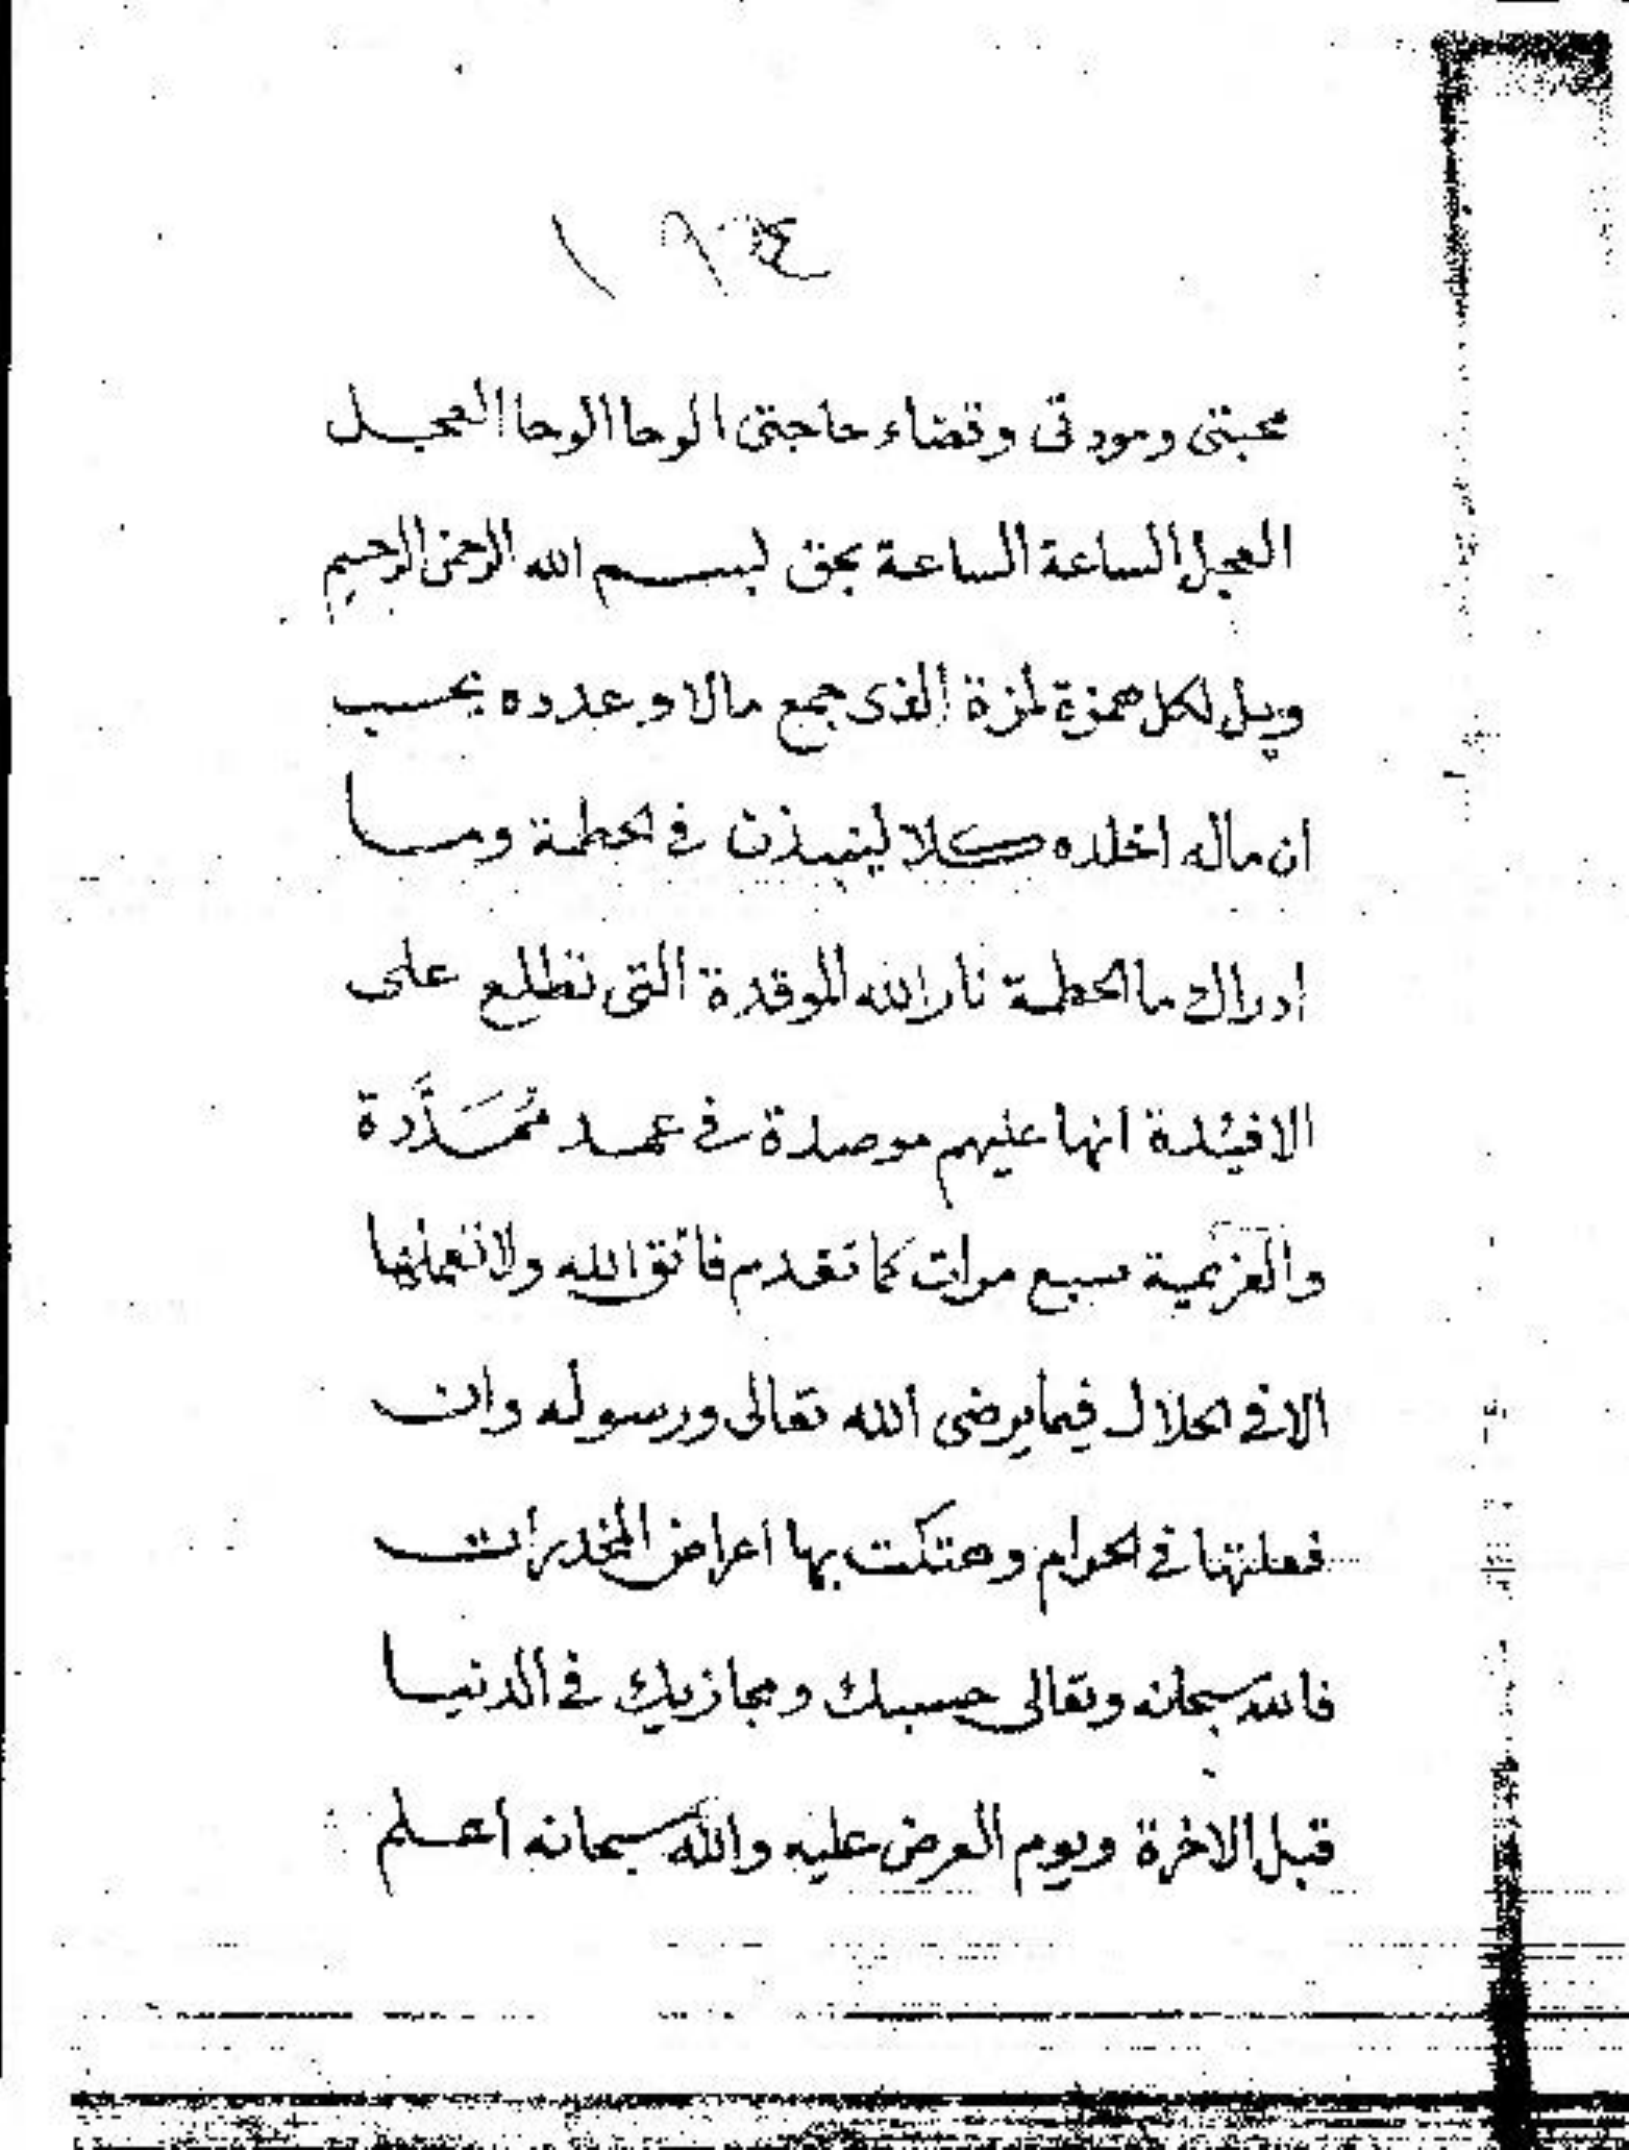 ١٩٤
محبتى ومودتى وقضاء حاجتى الوحا الوحا العجل
العجل الساعة الساعة بحق بسم الله الرحمن الرحيم
ويل لكل همزة لمزة الذى جمع مالا وعدده يحسب
ان ماله اخلده كلا لينبذن فى الحطمة وما
ادراك ما الحطمة نار الله الموقدة التى تطلع على
الافئدة انها عليهم موصدة فى عمد مُمَدَّدة
والعزيمة سبع مرات كما تقدم فاتق الله ولا تعملها
الا فى الحلال فيما يرضى الله تعالى ورسوله وان
فعلتها فى الحرام وهتكت بها اعراض المخدرات
فالله سبحانه وتعالى حسبك ومجازيك فى الدنيا
قبل الاخرة ويوم العرض عليه والله سبحانه اعلم